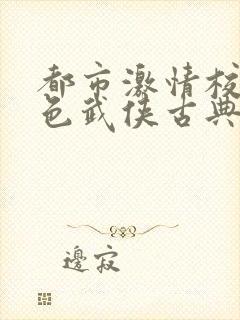 都市激情校
色武侠古典
邊寂